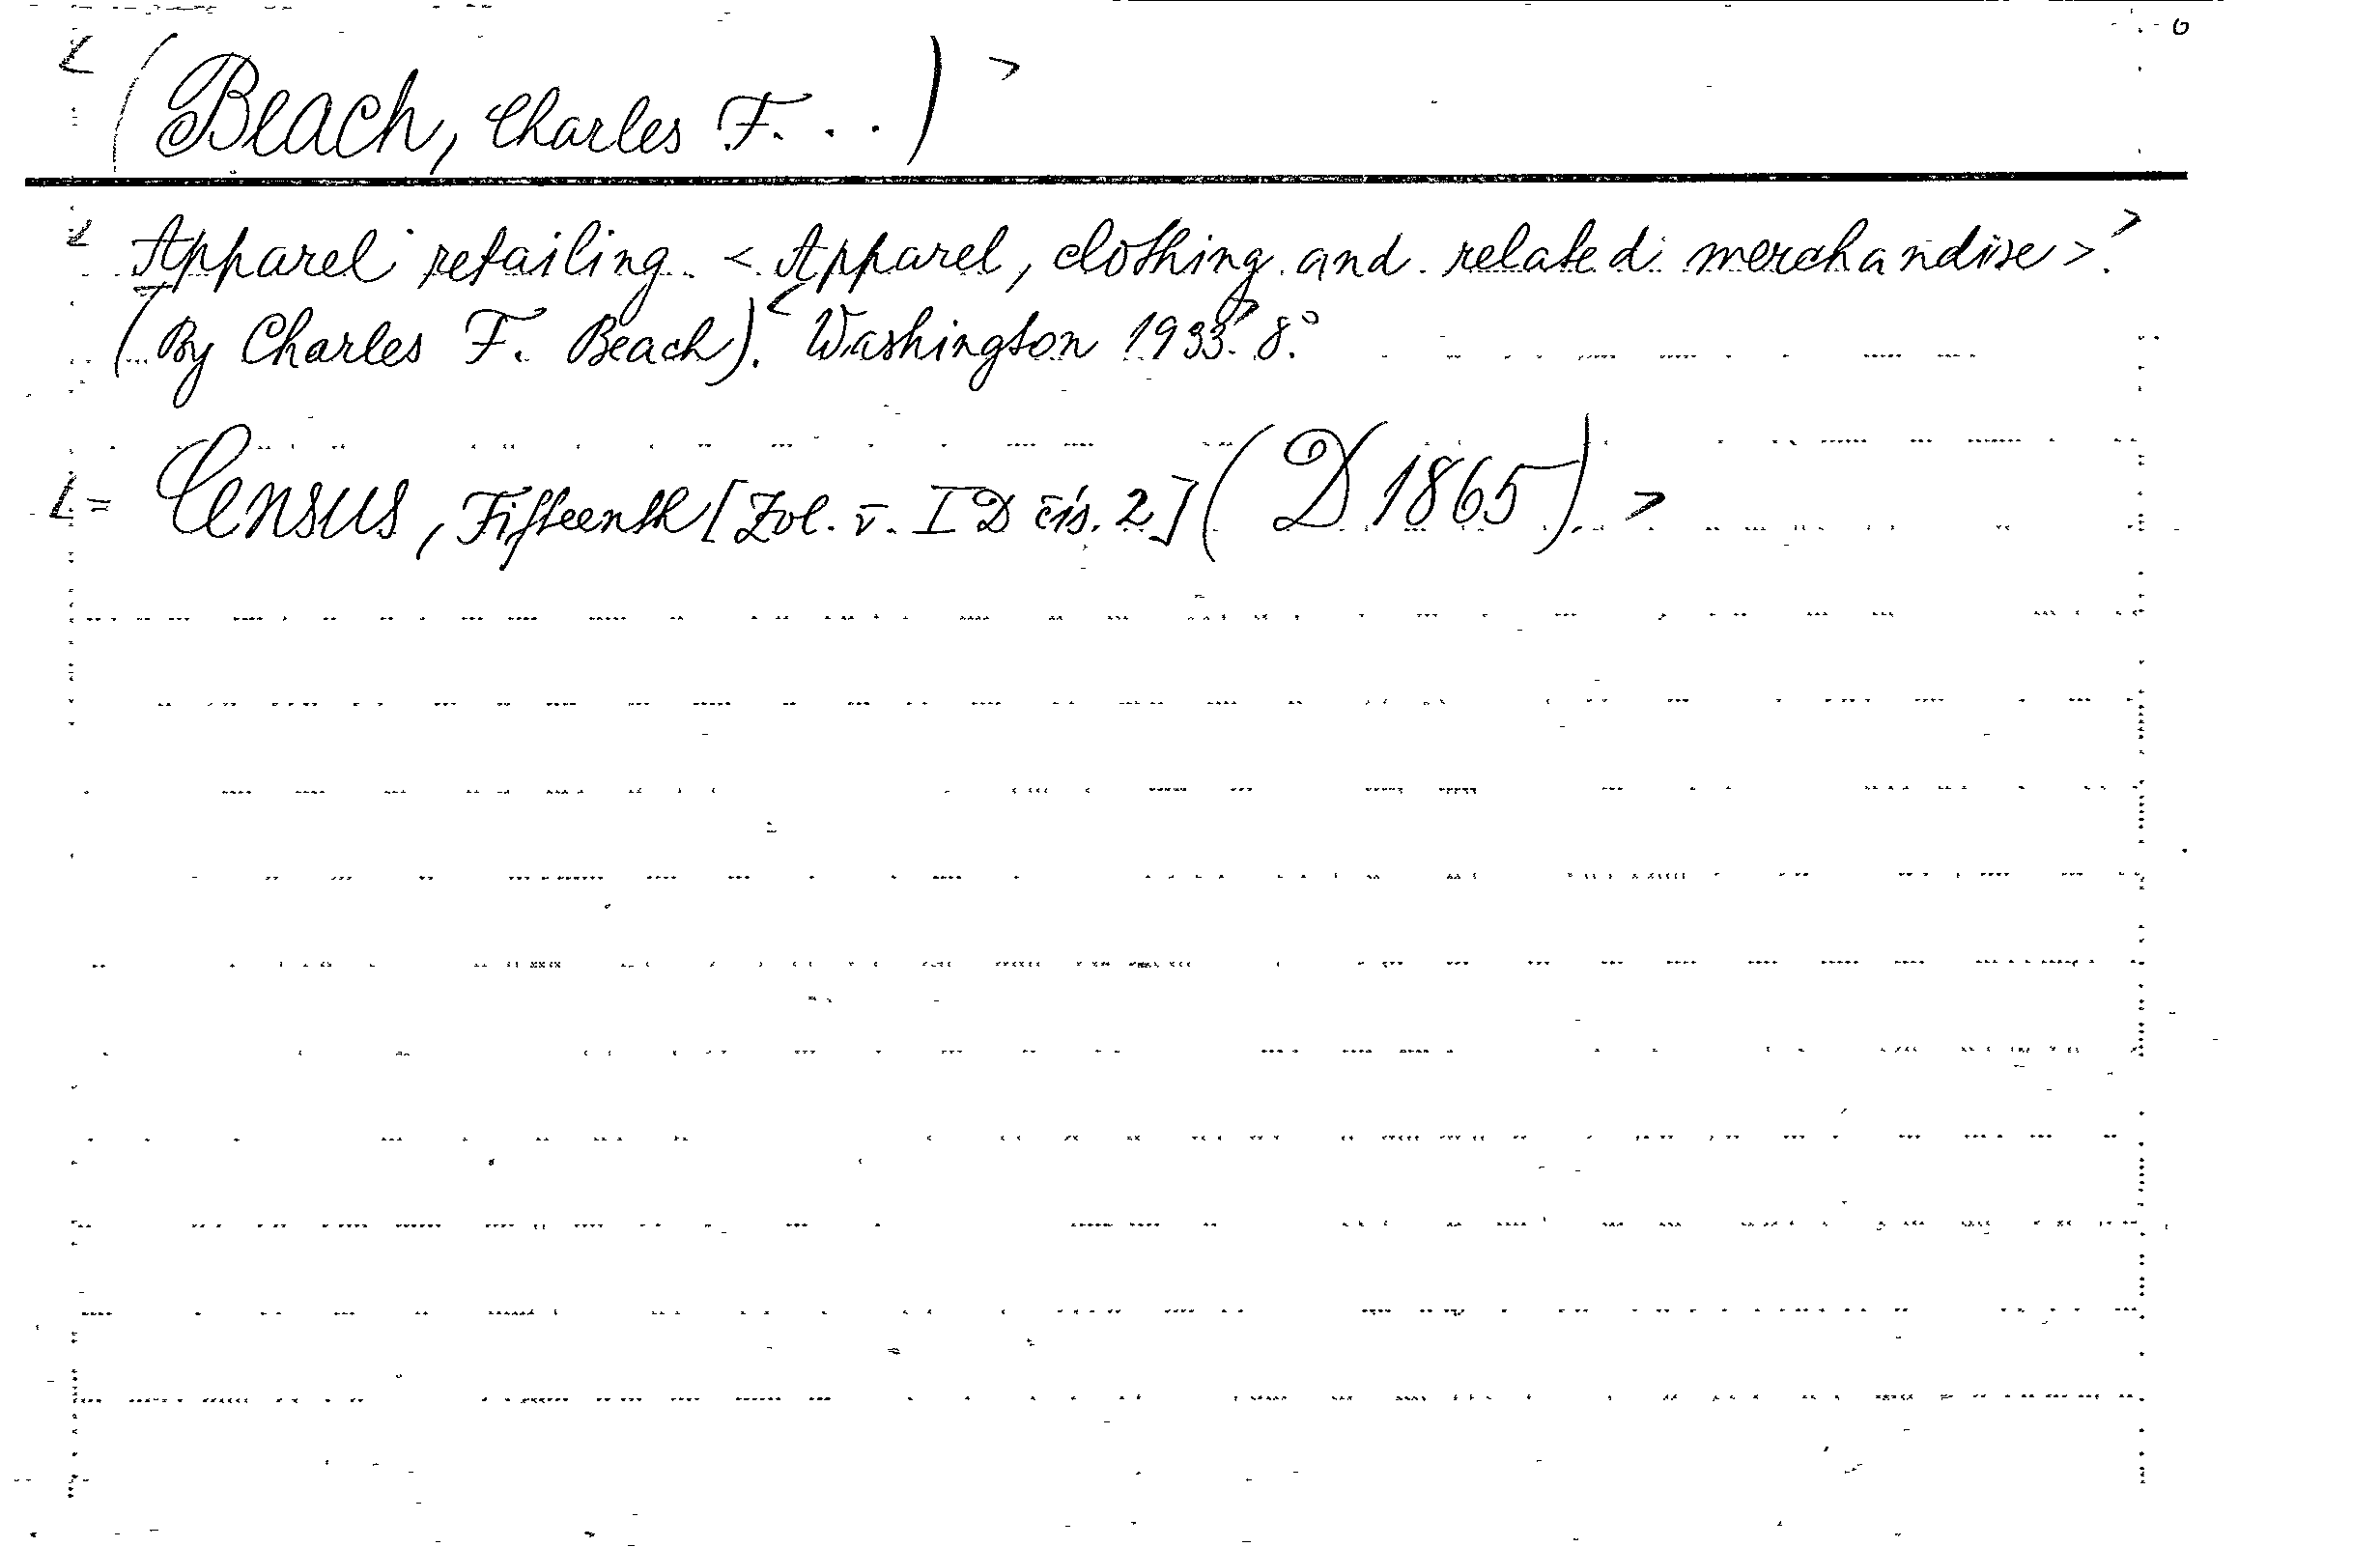 < (Beach, Charles F. . .) >
< Apparel retailing. < Apparel, clothing and related merchandise >. >
(By Charles F. Beach). < Washington 1933. > 8°.
< = Census, Fifteenth [Zvl. v. I D čís. 2] (D 1865). >